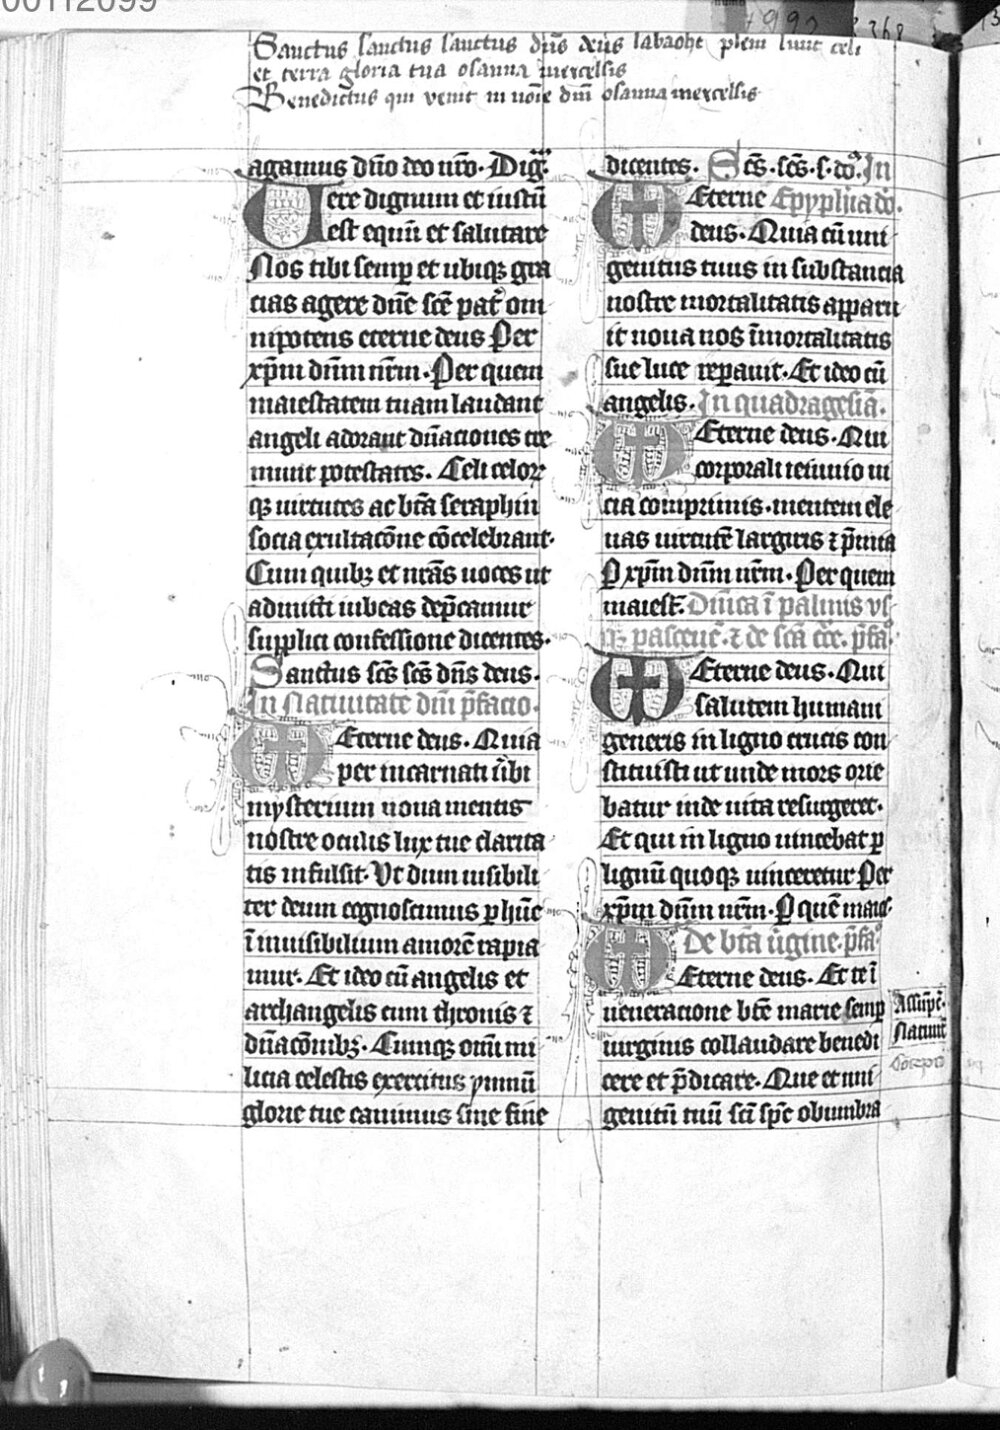 00112099
Sanctus sanctus sanctus dn̄s deus sabaoht pleni sunt celi
et terra gloria tua osanna inexcelsis
Benedictus qui venit in noīe dnī osanna inexcelsis
agamus dn̄o deo nr̄o. Dig
Uere dignum et iustū
est equū et salutare
Nos tibi semꝑ et ubiqꝫ gra
cias agere dn̄e scē pat̓ om
nipotens eterne deus Per
xp̄m dn̄m nr̄m. Per quem
maiestatem tuam laudant
angeli adorant dn̄aciones tre
munt potestates. Celi celoꝝ
qꝫ uirtutes ac bt̄a seraphin
socia exultacōne cōcelebrant.
Cum quibꝫ et nr̄as uoces ut
admitti iubeas dep̄camur
supplici confessione dicentes.
Sanctus scs̄ scs̄ dn̄s deus.
In Natiuitate dnī p̄facio.
Eterne deus. Quia
per incarnati u̓bi
mysterium noua mentis
nostre oculis lux tue clarita
tis infulsit. Ut dum uisibili
ter deum cognoscimus ꝑ hūc
ī inuisibilium amorē rapia
mur. Et ideo cū angelis et
archangelis cum thronis ⁊
dn̄acōnibꝫ. Cumqꝫ omī mi
licia celestis exercitus ymnū
glorie tue canimus sine fine
dicentes. Scs̄. scs̄. s. do. In
Eterne Epyphīa do.
deus. Quia cū uni
genitus tuus in substancia
nostre mortalitatis apparu
it noua nos īmortalitatis
sue luce reparauit. Et ideo cū
angelis. In quadragesīa.
Eterne deus. Qui
corporali ieiunio ui
cia comprimis. mentem ele
uas uirtutē largiris ⁊ p̄mia
ꝑ xp̄m dn̄m nr̄m. Per quem
maiest. Dn̄ica ī palmis vs
qꝫ pascens̄. ⁊ de scā cce. p̄fa
Eterne deus. Qui
salutem humani
generis in ligno crucis con
stituisti ut unde mors orie
batur inde uita resurgeret.
Et qui in ligno uincebat ꝑ
lignū quoqꝫ uinceretur Per
xp̄m dn̄m nr̄m. ꝑ quē maies
De bt̄a u̓gine. p̄fa
Eterne deus. Et te ī
ueneracione bt̄e marie semp
uirginis collaudare benedi
cere et p̄dicare. Que et uni
genitū tuū scī spc̄ obumbra
Assūpc̄.
Natiuit̄